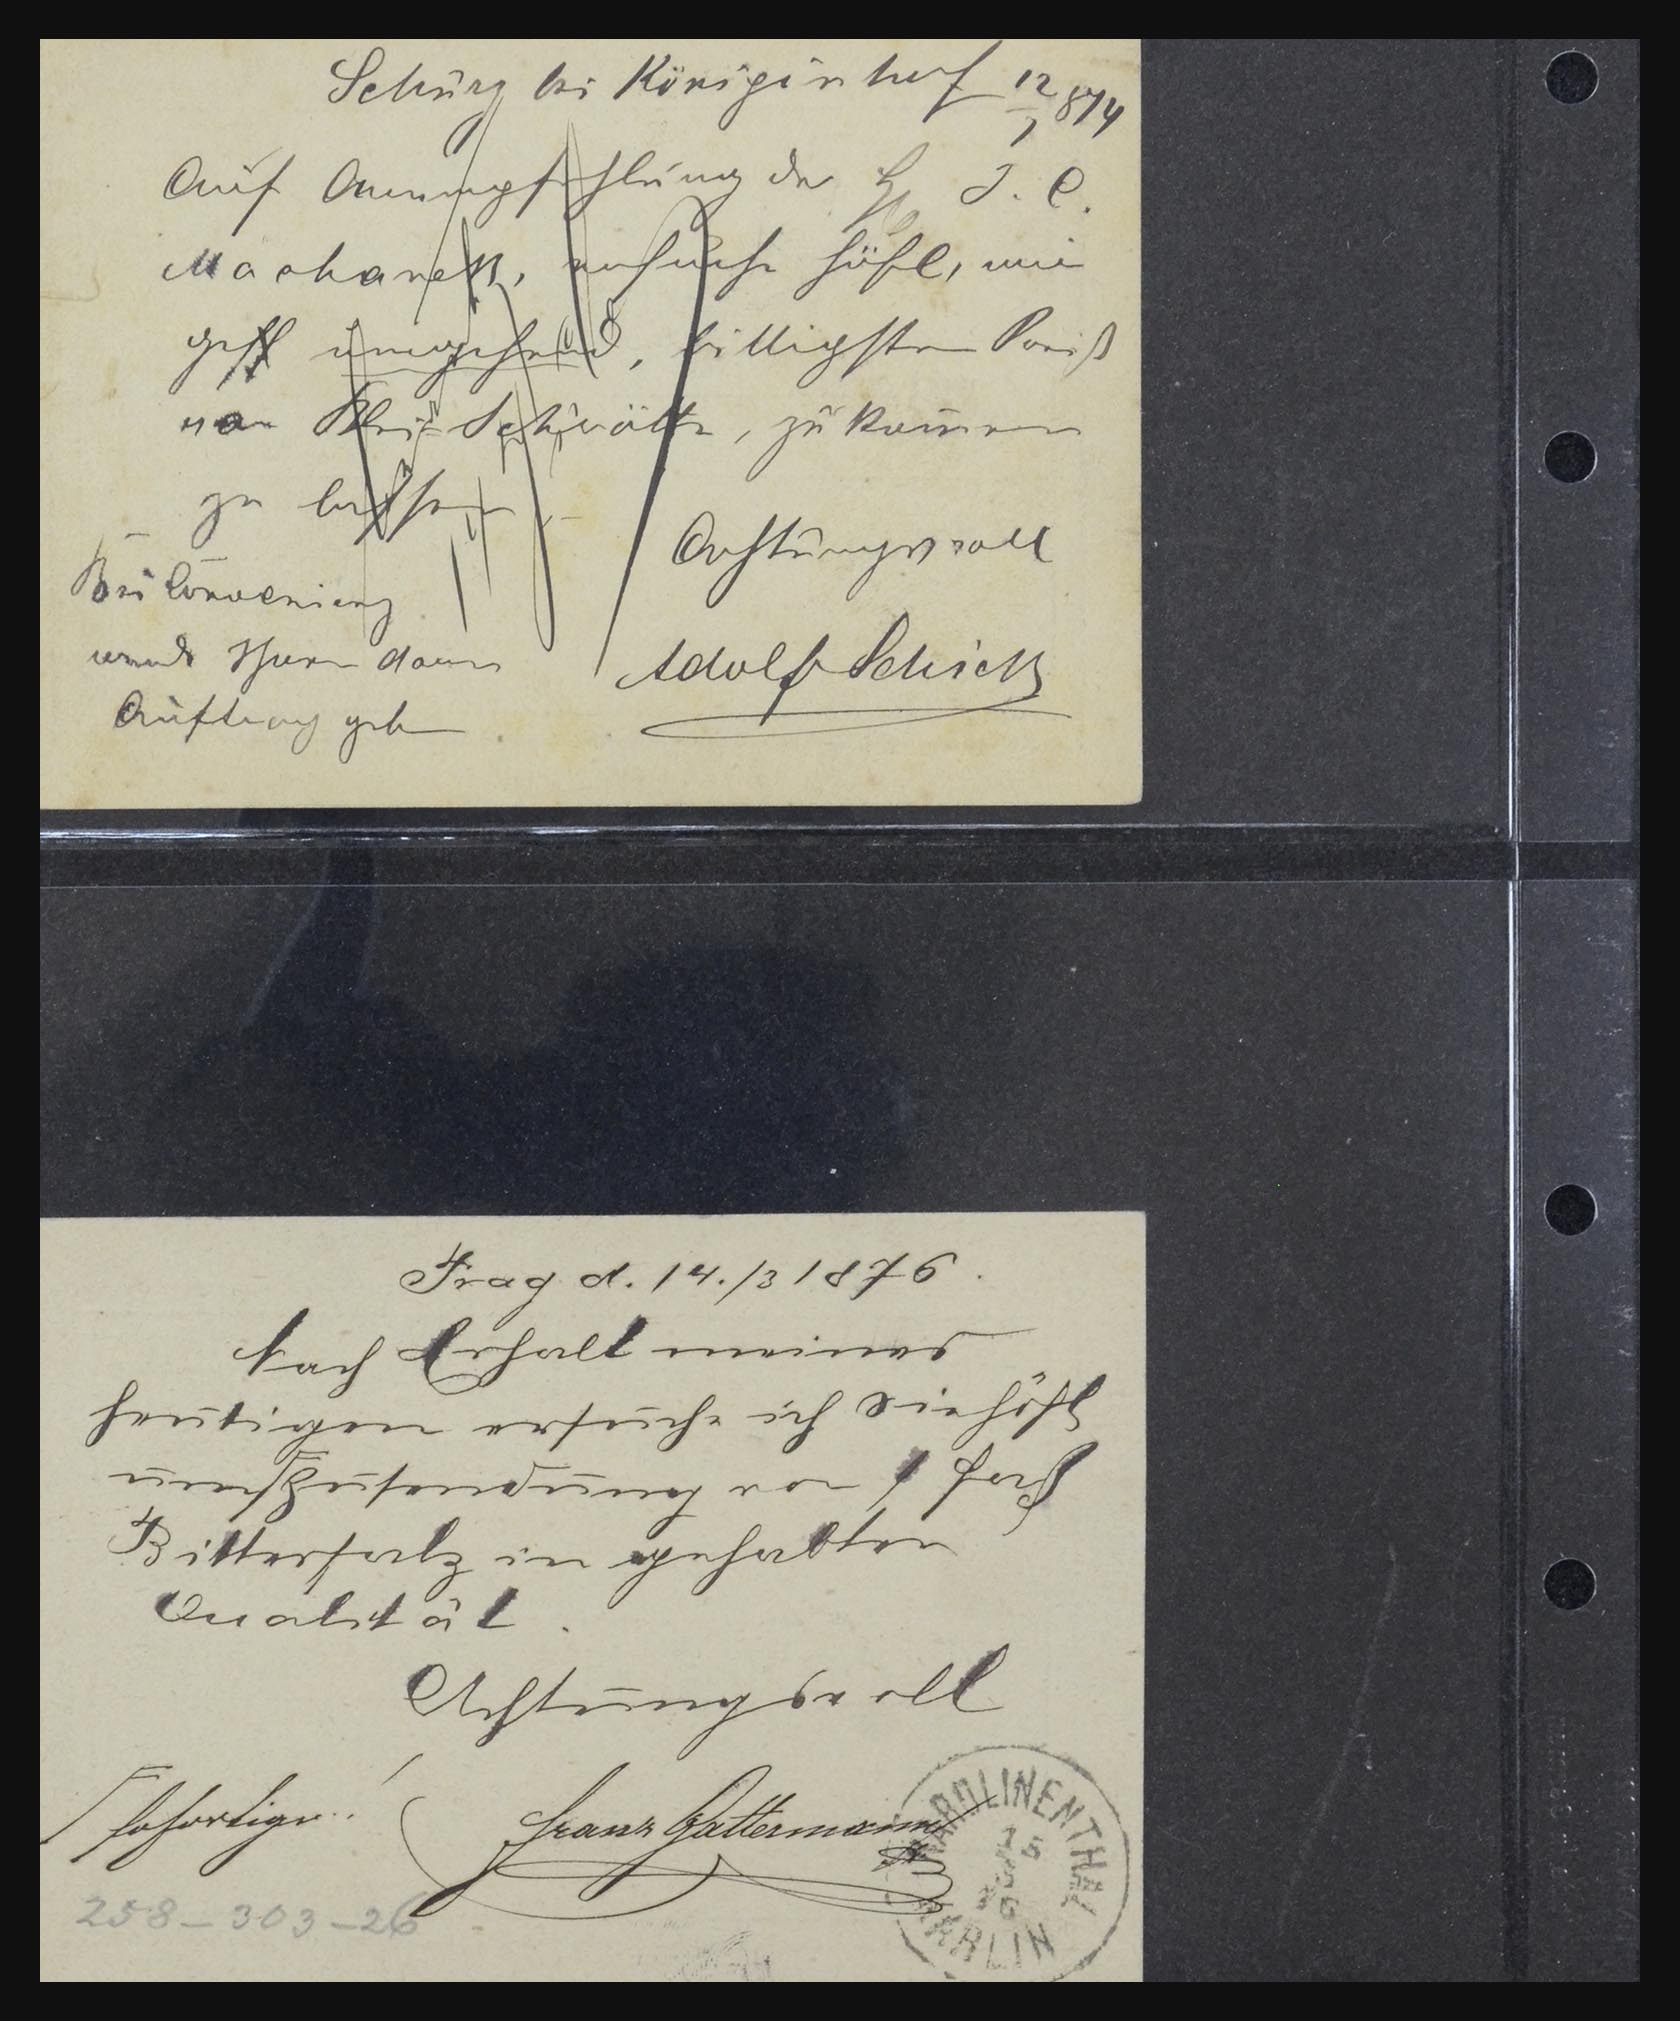 Schurz bei Königinhof 12/7 874
Auf Anempfehlung der H J. C.
Machanek, ersuche höfl, mir
gefl umgehend, billigsten Preiß
von Blei Schrötte, zu kommen
zu lassen
Achtungsvoll
Bei Convenienz
werde Ihnen dann
Auftrag geben
Adolf Schick
Prag d. 14./3 1876.
Nach Erhalt meines
heutigen ersuche ich Sie höfl
um Zusendung von 1 Faß
Bittersalz in gehabten
Qualität.
Achtungsvoll
Franz Gattermann
KAROLINENTHAL
15
3
76
KARLIN
258-303-26